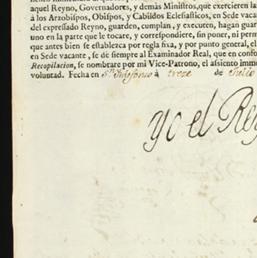 aquel Reyno, Governadores, y demàs Ministros, que exercieren la
à los Arzobispos, Obispos, y Cabildos Eclesiasticos, en Sede vaca
del expressado Reyno, guarden, cumplan, y executen, hagan guar
uno en la parte que le tocare, y correspondiere, sin poner, ni perm
que antes bien se establezca por regla fixa, y por punto general, el
en Sede vacante, se de siempre al Examinador Real, que en confo
Recopilacion, se nombrare por mi Vice-Patrono, el assiento immed
voluntad. Fecha en Sn. Ildefonso à trece de Julio
Yo el Rey